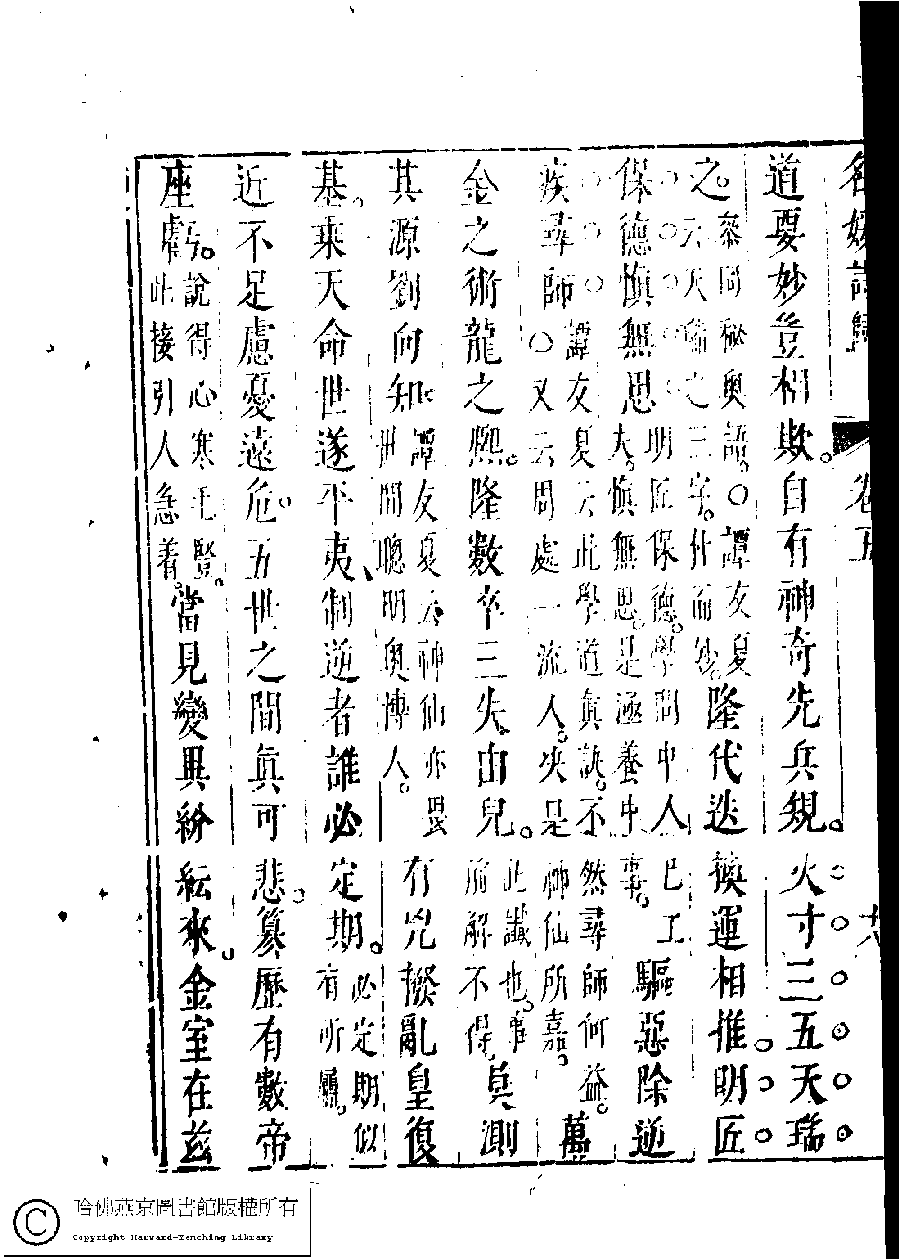 名媛詩歸 卷五 十八
道要妙豈相欺自有神奇先兵規火寸三五天瑞
之叅同秘奧語○譚友夏云天瑞之三字什而妙隆代迭換運相推明匠
保德慎無思明匠保德學問中人大慎無思是涵養中已工事驅惡除逆
疾尋師譚友夏云此學道真訣不然尋師何益○又云問處一流人決是神仙所嘉萬
金之術龍之熙隆數卒三失由兒此讖也事前解不得莫測
其源劉向知譚友夏云神仙亦畏世間聰明奧博人有兇撥亂皇復
基乘天命世遂平夷制逆者誰必定期必定期似有所屬
近不足慮憂遠危五世之間眞可悲篡歷有數帝
座虧說得心寒毛豎此接引人急着當見變異紛紜來金室在茲
哈佛燕京圖書館版權所有
Copyright Harvard-Yenching Library